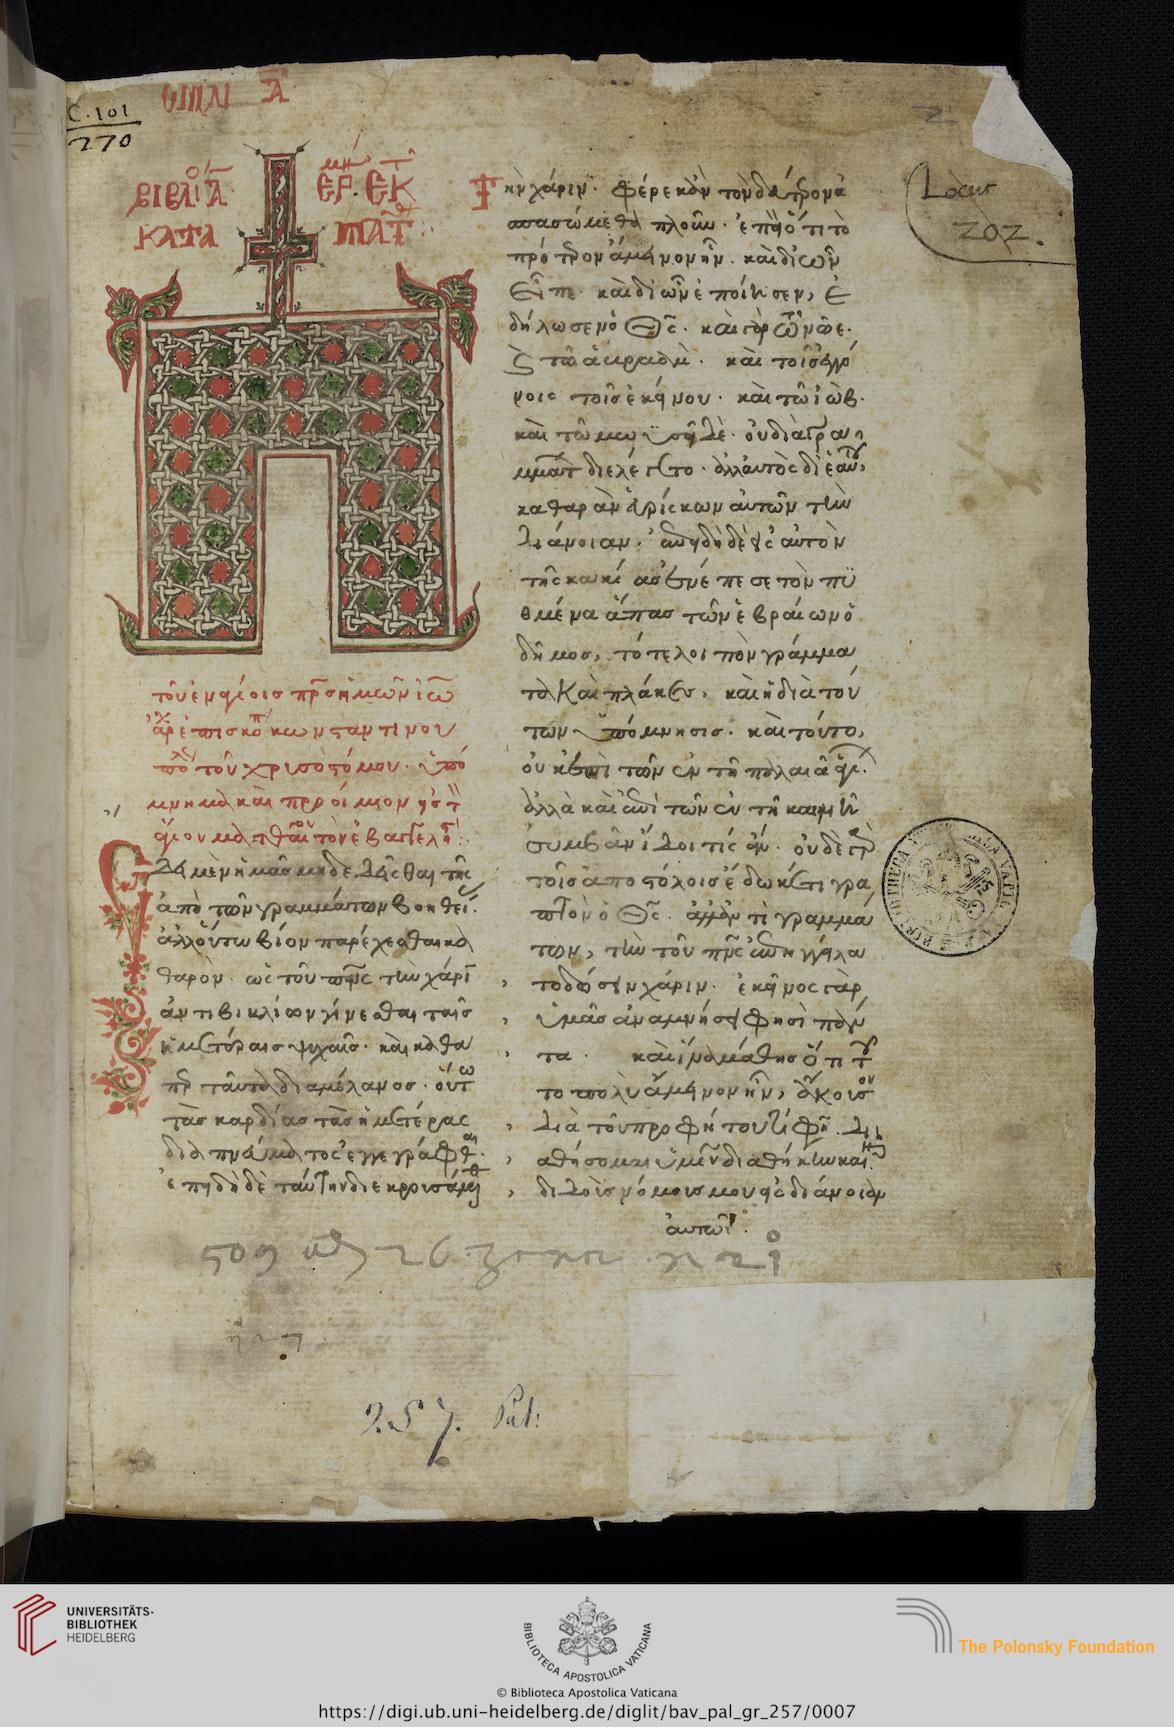 ὁμιλί Α
C. 101
270
2
Locus
202.
βιβλίον Α ἑρμ. ἐκ τ
κατὰ Ματθ
τοῦ ἐν ἁγίοις πρς ἡμῶν ἰω
ἀρχεπισκοπ κωνσταντινου
πολ τοῦ χρυσοστόμου. ὑπό
μνημα καὶ προοίμιον εἰς τ
ἅγιον ματθαῖον τὸν εὐαγγελη
Ἔδει μὲν ἡμᾶς μηδὲ δεῖσθαι τῆς
ἀπὸ τῶν γραμμάτων βοηθεί.
ἀλλ' οὕτω βίον παρέχεσθαι κα
θαρὸν. ὡς τοῦ πνς τὴν χάριν
ἀντὶ βιβλίων γίνεσθαι ταῖς
ἡμετέραις ψυχαῖς. καὶ καθα
περ ταῦτα διὰ μέλανος. οὕτω
τὰς καρδίας τὰς ἡμετέρας
διὰ πνεύματος ἐγγεγράφθαι.
ἐπειδὴ δὲ ταύτην διεκρουσάμεθ
τὴν χάριν. φέρε κἂν τὸν δεύτερον ἀ
σπασώμεθα πλοῦν. ἐπεὶ ὅτι τὸ
πρότερον ἄμεινον ἦν. καὶ δι' ὧν
εἶπε. καὶ δι' ὧν ἐποίησεν, ἐ
δήλωσεν ὁ Θς. καὶ γὰρ τῶ νῶε.
καὶ τῶ ἀβραὰμ. καὶ τοῖς ἐγγό
νοις τοῖς ἐκείνου. καὶ τῶ ἰὼβ.
καὶ τῶ μωϋσῆ δὲ. οὐ διὰ γρα
μμάτ διελέγετο. ἀλλ' αὐτὸς δι' ἑαυτοῦ,
καθαρὰν εὑρίσκων αὐτῶν τὴν
διάνοιαν. ἐπειδὴ δὲ εἰς αὐτὸν
τῆς κακίας ἐνέπεσε τὸν πυ
θμένα ἅπας τῶν ἑβραίων ὁ
δῆμος, τότε λοιπὸν γράμμα
τα καὶ πλάκες, καὶ ἡ διὰ τού
των ὑπόμνησις. καὶ τοῦτο,
οὐκ ἐπὶ τῶν ἐν τῆ παλαιᾶ ἁγί.
ἀλλὰ καὶ ἐπὶ τῶν ἐν τῆ καινῆ
συμβὰν ἴδοι τίς ἄν. οὐδὲ γὰρ
τοῖς ἀποστόλοις ἔδωκέ τι γρα
πτὸν ὁ Θς. ἀλλ' ἀντὶ γραμμά
των, τὴν τοῦ πνς ἐπηγγείλα
το δώσειν χάριν. ἐκεῖνος γὰρ
ὑμᾶς ἀναμνήσει φησὶ πάν
τα. καὶ ἵνα μάθης ὅτι τοῦ
το πολὺ ἄμεινον ἦν, ἄκουσον
διὰ τοῦ προφήτου τί φησι. δι
αθήσομαι ὑμῖν διαθήκην καινήν.
διδοὺς νόμους μου εἰς διάνοιαν
αὐτῶν.
257. Pal:
UNIVERSITÄTS-
BIBLIOTHEK
HEIDELBERG
BIBLIOTECA APOSTOLICA VATICANA
The Polonsky Foundation
© Biblioteca Apostolica Vaticana
https://digi.ub.uni-heidelberg.de/diglit/bav_pal_gr_257/0007